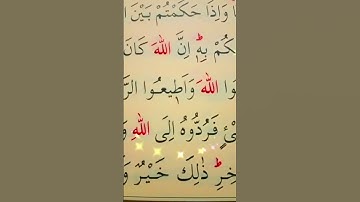 وَاِذَا حَكَمْتُمْ بَيْنَ
كُمْ بِهٖ ؕ اِنَّ اللّٰهَ كَانَ
اللّٰهَ وَاَطِيعُوا
فَرُدُّوهُ اِلَى اللّٰهِ
ذٰلِكَ خَيْرٌ